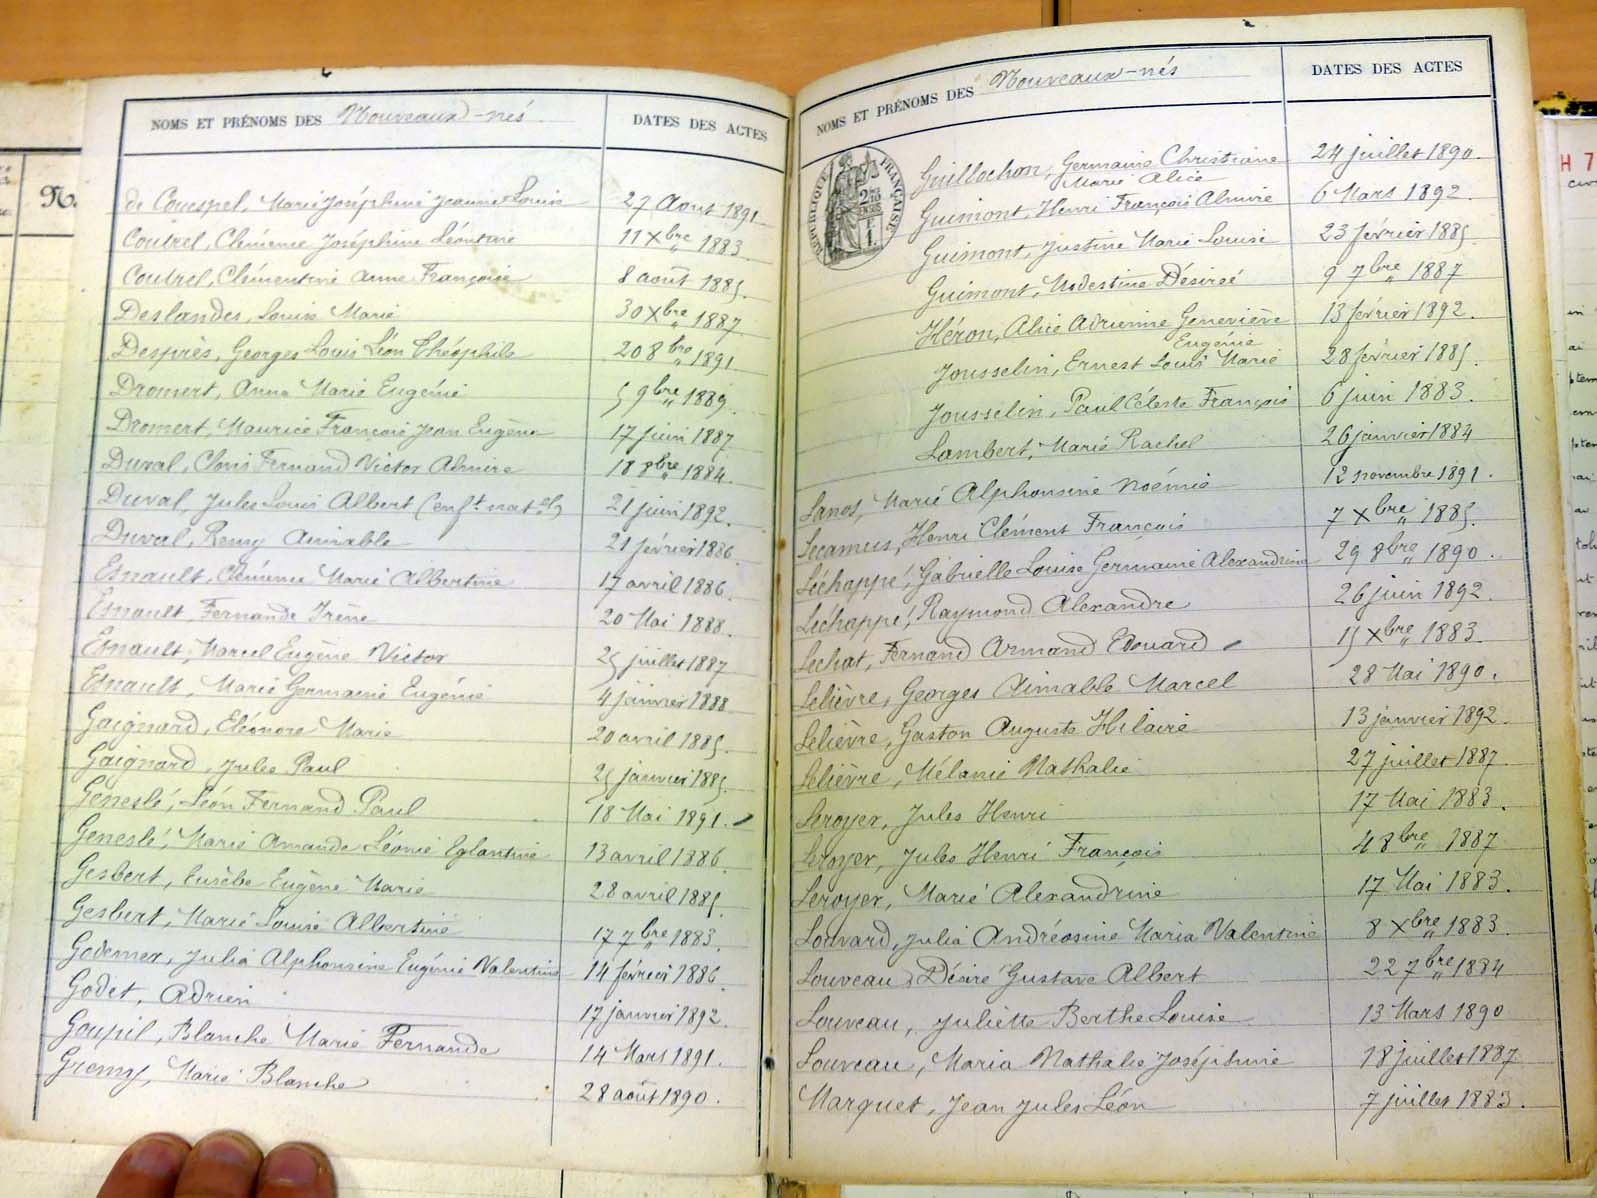 NOMS ET PRÉNOMS DES Nouveaux-nés. DATES DES ACTES
de Couespel, Marie Joséphine Jeanne Louise 27 Aout 1891
Coutrel, Clémence Joséphine Léontine 11 Xbre 1883
Coutrel, Clémentine Anne Françoise 8 août 1885.
Deslandes, Louise Marie 30 Xbre 1887
Desprès, Georges Louis Léon Théophile 20 8bre 1891
Dromert, Anna Marie Eugénie 5 9bre 1889.
Dromert, Maurice François Jean Eugène 17 juin 1887
Duval, Clovis Fernand Victor Almire 18 8bre 1884.
Duval, Jules Louis Albert (enft. natel) 21 juin 1892.
Duval, Remy Aimable 21 février 1886.
Esnault, Clémence Marie Albertine 17 avril 1886.
Esnault, Fernande Irène 20 Mai 1888.
Esnault, Marcel Eugène Victor 25 juillet 1887
Esnault, Marie Germaine Eugénie 4 janvier 1888
Gaignard, Eléonore Marie 20 avril 1885.
Gaignard, Jules Paul 25 janvier 1885.
Geneslé, Léon Fernand Paul 18 Mai 1891.
Geneslé, Marie Amanda Léonie Eglantine 13 avril 1886.
Gesbert, Eusèbe Eugène Marie 28 avril 1885.
Gesbert, Marie Louise Albertine 17 7bre 1883.
Godemer, Julia Alphonsine Eugénie Valentine 14 février 1886.
Godet, Adrien 17 janvier 1892.
Goupil, Blanche Marie Fernande 14 Mars 1891.
Gremy, Marie Blanche 28 août 1890.
NOMS ET PRÉNOMS DES Nouveaux-nés DATES DES ACTES
RÉPUBLIQUE FRANÇAISE
Guillochon, Germaine Christiane 24 juillet 1890.
Marie Alice
Guimont, Henri François Almire 6 Mars 1892.
Guimont, Justine Marie Louise 23 février 1885.
Guimont, Modestine Désirée 9 7bre 1887
Héron, Alice Adrienne Geneviève 13 février 1892.
Eugénie
Jousselin, Ernest Louis Marie 28 février 1885.
Jousselin, Paul Céleste François 6 juin 1883.
Lambert, Marie Rachel 26 janvier 1884
Lanos, Marie Alphonsine Noémie 12 novembre 1891.
Lecamus, Henri Clément François 7 Xbre 1885.
Léchappé, Gabrielle Louise Germaine Alexandrine 29 8bre 1890.
Léchappé, Raymond Alexandre 26 juin 1892.
Lechat, Fernand Armand Edouard 15 Xbre 1883.
Lelièvre, Georges Aimable Marcel 28 Mai 1890.
Lelièvre, Gaston Auguste Hilaire 13 janvier 1892.
Lelièvre, Mélanie Nathalie 27 juillet 1887.
Leroyer, Jules Henri 17 Mai 1883.
Leroyer, Jules Henri François 4 8bre 1887
Leroyer, Marie Alexandrine 17 Mai 1883.
Louvard, Julia Andréosine Maria Valentine 8 Xbre 1883.
Louveau, Désiré Gustave Albert 22 7bre 1884
Louveau, Juliette Berthe Louise 13 Mars 1890
Louveau, Maria Nathalie Joséphine 18 juillet 1887
Marquet, Jean Jules Léon 7 juillet 1883.
H 7